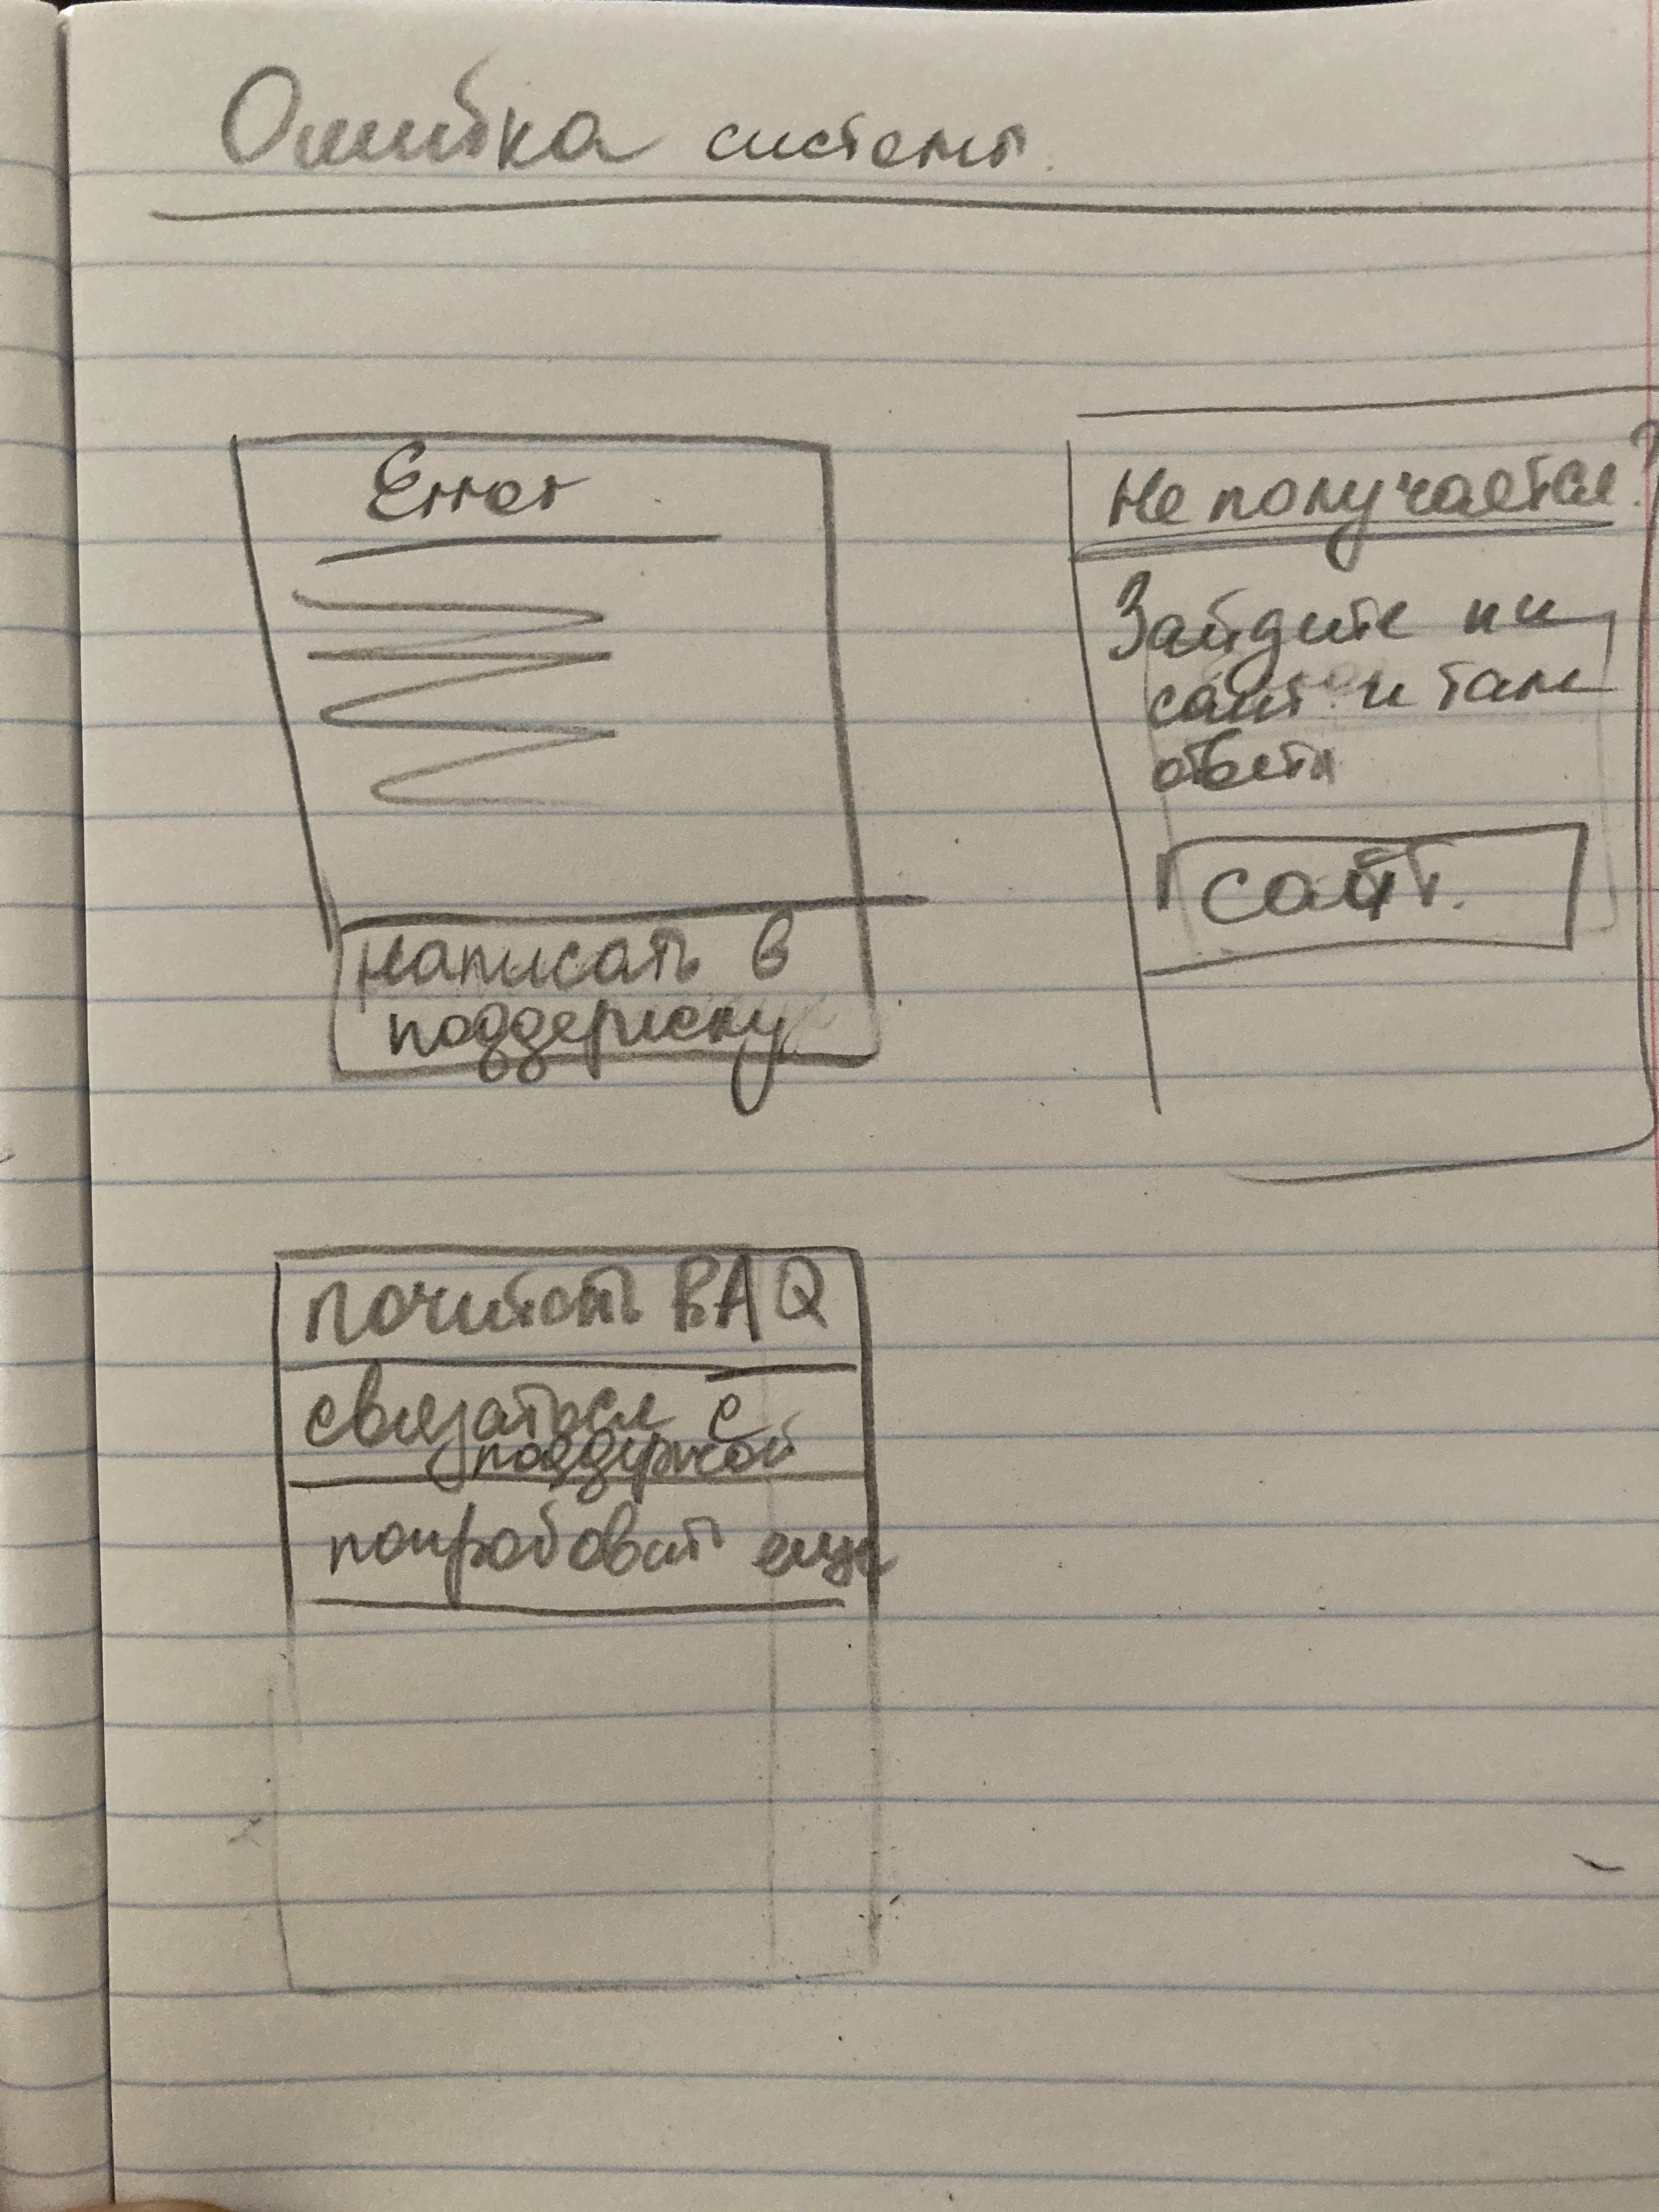 Ошибка системы
Error
Написать в
поддержку
Не получается?
Зайдите на
сайт и там
ответы
сайт.
почитать FAQ
связаться с
поддержкой
попробовать еще